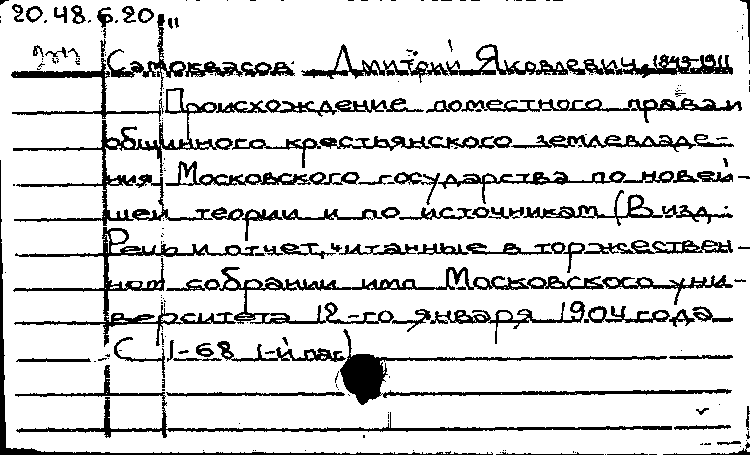 20.48.6.20
Самоквасов Дмитрий Яковлевич, 1843-1911
Происхождение поместного права и
общинного крестьянского землевладе-
ния Московского государства по новей-
шей теории и по источникам (В изд.:
Речь и отчет, читанные в торжествен-
ном собрании имп Московского уни-
верситета 12-го января 1904 года
С 1-68 1-й паг.)